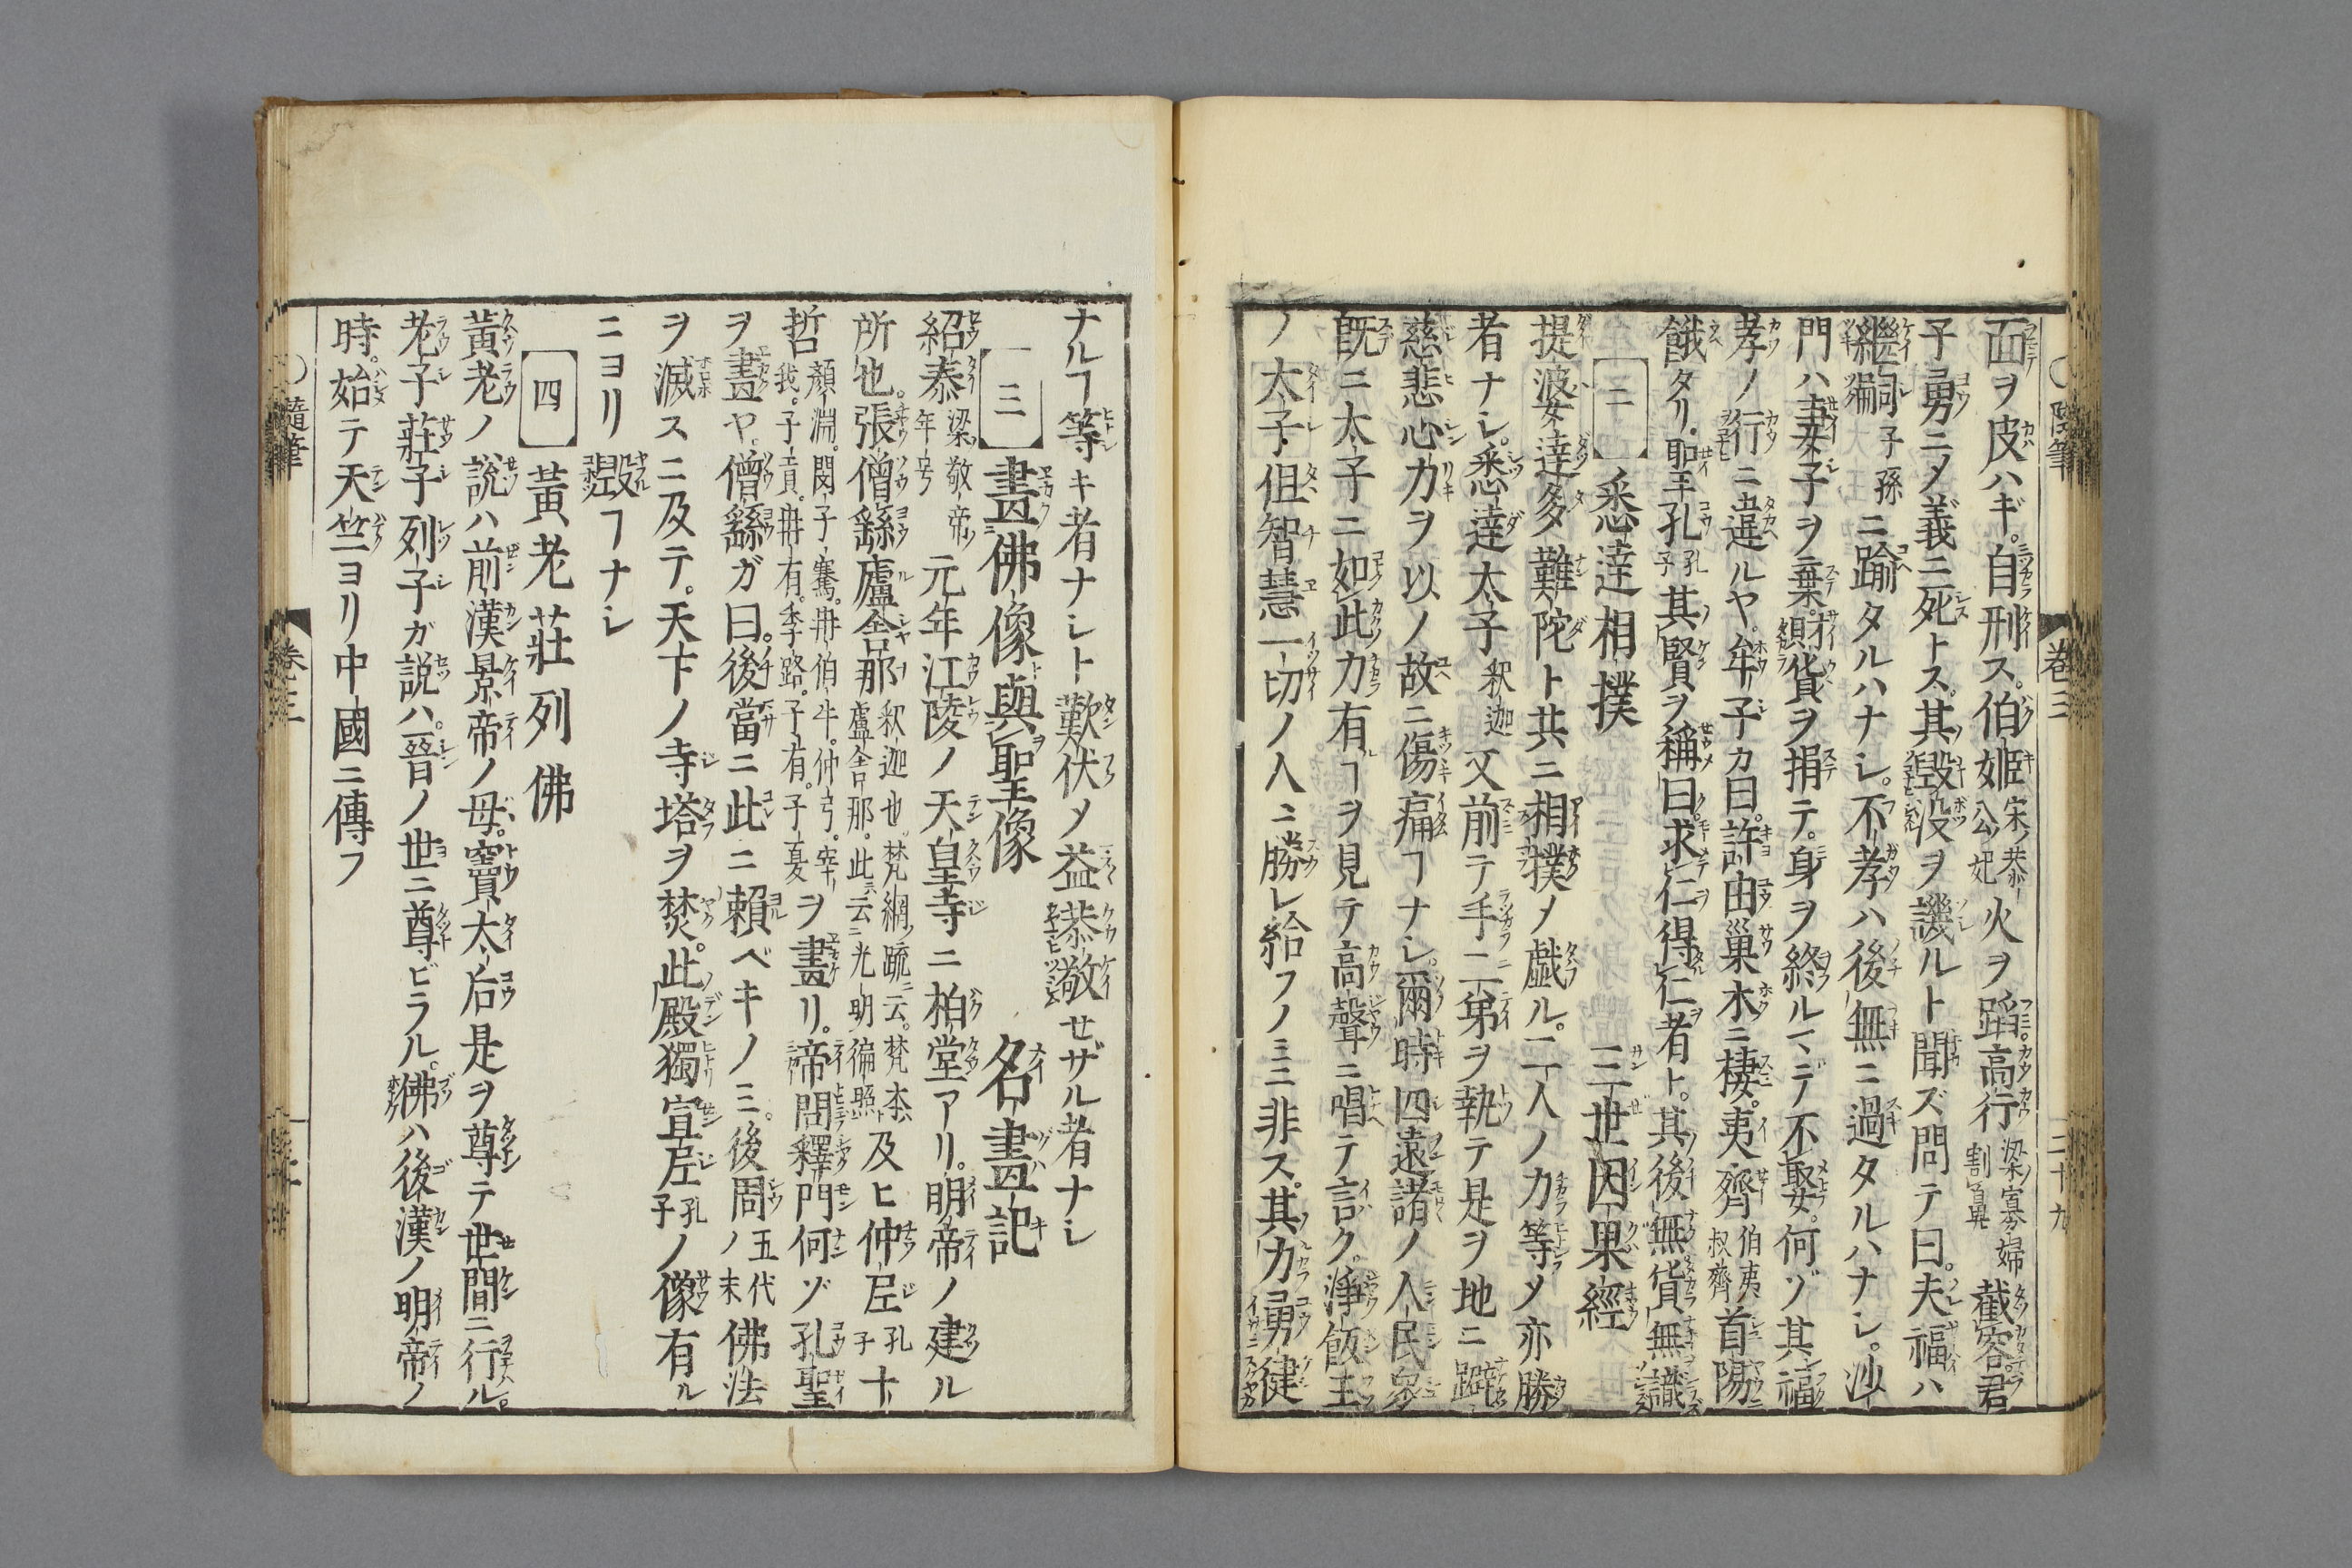 面ヲ皮ハギ。自刑ス。伯姫宋ノ恭公ノ妃火ヲ蹈。高行梁ノ寡婦割鼻截容。君
子勇ニ〆義ニ死トス。其毀没ヲ譏ルト聞ズ問テ曰。夫福ハ
継嗣子孫ニ踰タルハナシ。不孝ハ後無ニ過タルハナシ。沙
門ハ妻子ヲ棄。財貨ヲ捐テ。身ヲ終ルマデ不娶。何ゾ其福
孝ノ行ニ違ルヤ。牟子カ曰。許由巣木ニ棲。夷齊伯夷叔齊首陽
餓タリ。聖孔孔子其賢ヲ稱曰。求仁得仁者ト。其後無貨無識
二 悉達相撲 三世因果經
提婆達多難陀ト共ニ相撲〆戯ル。二人ノ力等〆亦勝
者ナシ。悉達太子釈迦文前テ手二弟ヲ執テ是ヲ地ニ躃
慈悲心力ヲ以ノ故ニ傷痛ヿナシ。爾時四遠諸ノ人民衆
既ニ太子ニ如此力有ヿヲ見テ高聲ニ唱テ言ク。淨飯王
ノ太子。但智慧一切ノ人ニ勝レ給フノミニ非ス。其力勇健
ナルヿ等キ者ナシト歎伏〆益恭敬セザル者ナシ
三 畫佛像與聖像 名畫記
紹泰梁敬帝年号元年江陵ノ天皇寺ニ柏堂アリ。明帝ノ建ル
所也。張僧繇廬舎那釈迦也梵網疏ニ云。梵本盧舎那。此云光明徧照及ヒ仲尼孔子十
哲顔淵。閔子騫。冉伯牛。仲弓。宰我。子貢。冉有。季路。子有。子夏ヲ畫リ。帝問釋門何ゾ孔聖
ヲ畫ヤ。僧繇ガ曰。後當ニ此ニ賴ベキノミ。後周五代ノ末佛法
ヲ滅スニ及テ。天下ノ寺塔ヲ焚。此殿獨宣尼孔子ノ像有ル
ニヨリ毀ヿナシ
四 黃老莊列佛
黃老ノ說ハ前漢景帝ノ母。竇太后是ヲ尊テ世間ニ行ル。
老子莊子列子ガ說ハ。晉ノ世ニ尊ビラル。佛ハ後漢ノ明帝ノ
時。始テ天竺ヨリ中國ニ傳フ
隨筆 卷三